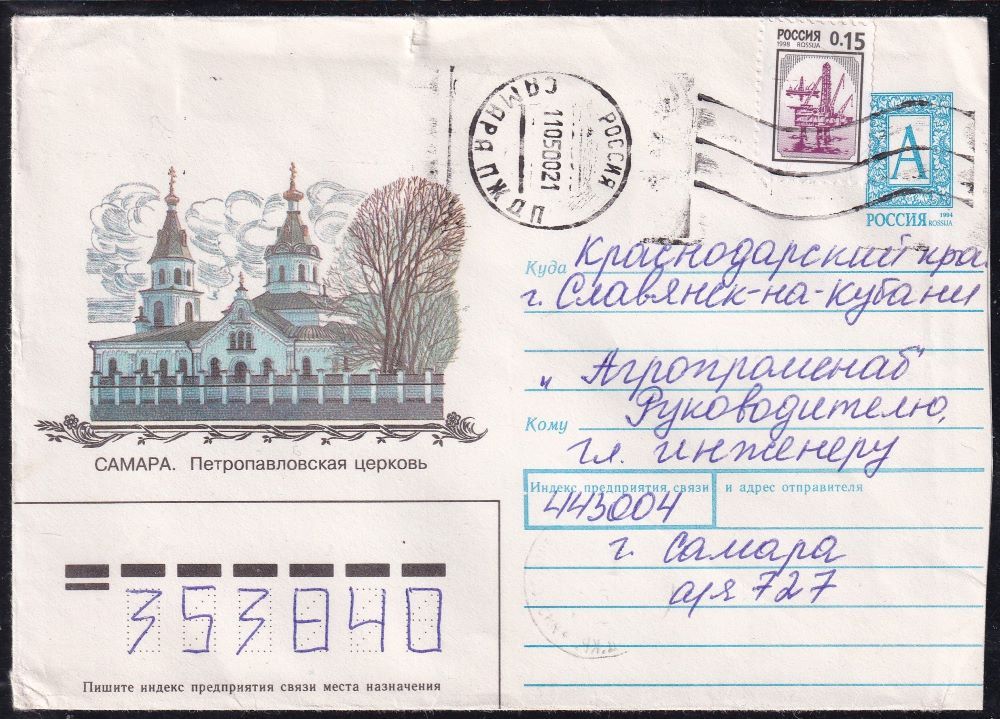 РОССИЯ 0.15
1998 ROSSIJA
РОССИЯ
САМАРА ПЖДЦ
110500021
А
РОССИЯ 1994
ROSSIJA
Куда Краснодарский кра
г. Славянск-на-Кубани
"Агропромснаб"
Кому Руководителю,
гл. инженеру
САМАРА. Петропавловская церковь
Индекс предприятия связи и адрес отправителя
443004
г. Самара
а/я 727
353840
Пишите индекс предприятия связи места назначения